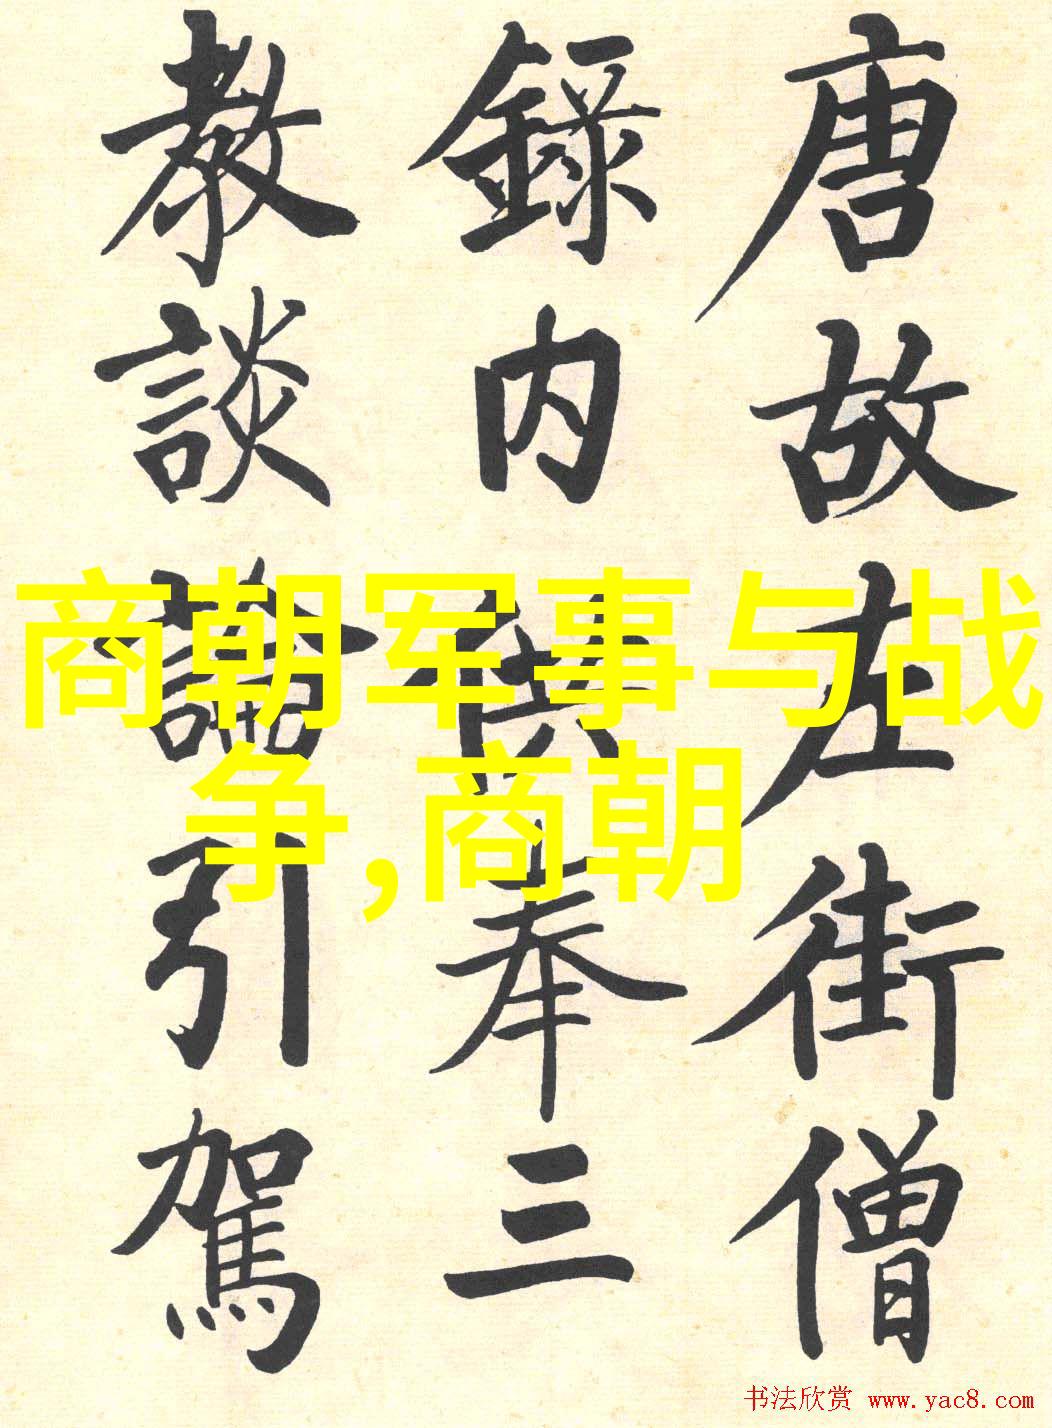 唐故左街僧
錄内供奉三
教談論引駕
商朝军事与战
争,商朝
书法欣赏 www.yac8.com